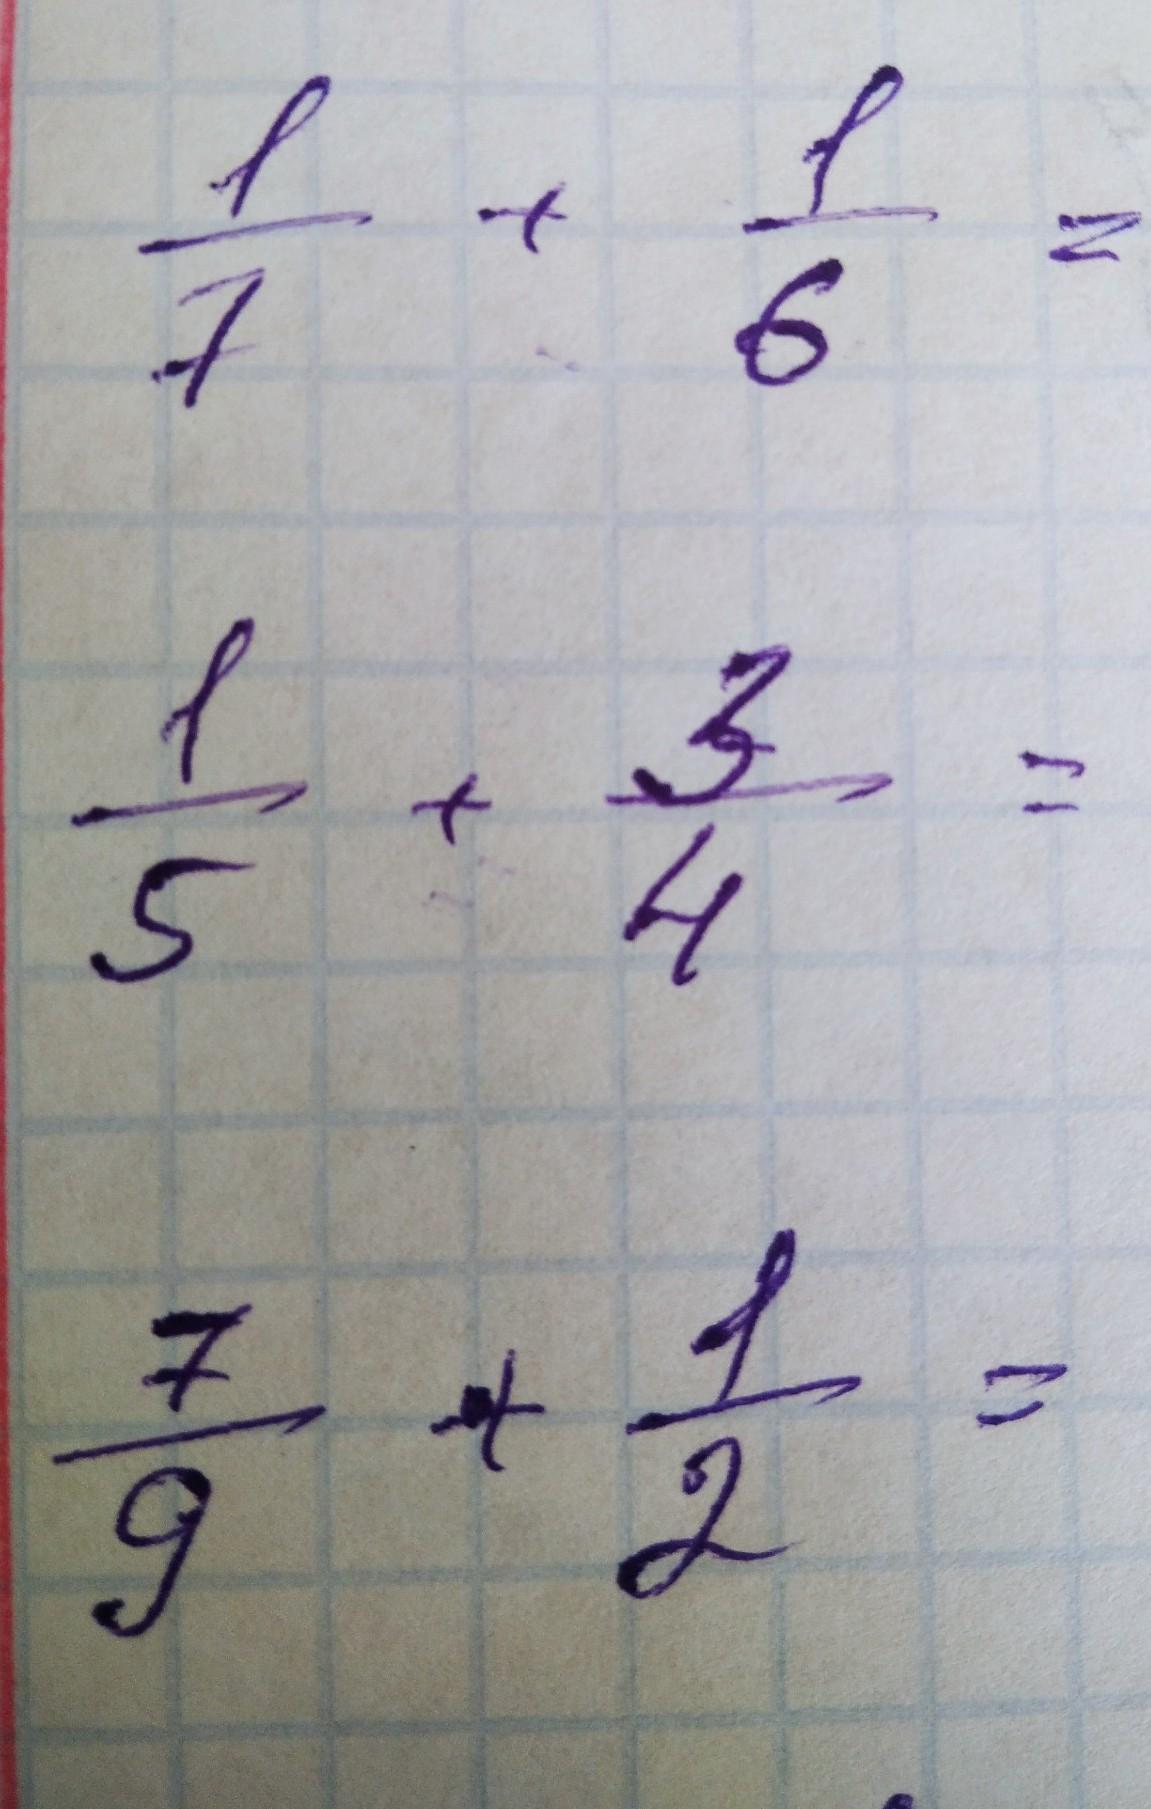 1/7 + 1/6 =
1/5 + 3/4 =
7/9 + 1/2 =